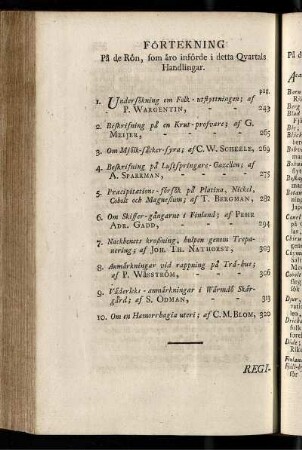 FÖRTEKNING
På de Rön, som äro införde i detta Qvartals
Handlingar.
pag.
1. Undersökning om Folk-utflyttningen; af
P. WARGENTIN, - - 243
2. Beskrifning på en Krut-profvare; af G.
MEIJER, - - - 265
3. Om Mjölk-såcker-syra; af C. W. SCHEELE, 269
4. Beskrifning på Luftspringare-Gazellen; af
A. SPARRMAN, - - 275
5. Præcipitations-försök på Platina, Nickel,
Cobolt och Magnesium; af T. BERGMAN, 282
6. Om Skiffer-gångarne i Finland; af PEHR
ADR. GADD, - - - 294
7. Nackbenets krossning, hulpen genom Trepa-
nering; af JOH. TH. NATHORST, 303
8. Anmärkningar vid rappning på Trä-hus;
af P. WÄSSTRÖM, - - 306
9. Väderleks-anmärkningar i Wärmdö Skär-
gård; af S. ÖDMAN, - 313
10. Om en Hæmorrhagia uteri; af C. M. BLOM, 320
REGI-